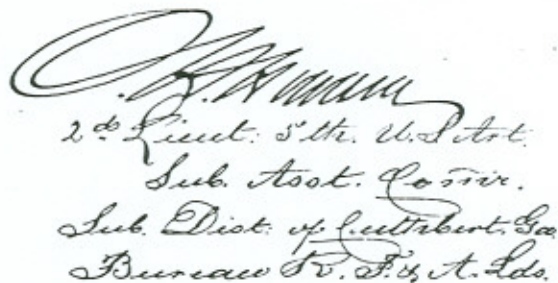 O. H. Howard
2d Lieut: 5th. U.S Art.
Sub. Asst. Comr.
Sub. Dist. of Cuthbert. Ga.
Bureau R. F. & A. Lds.